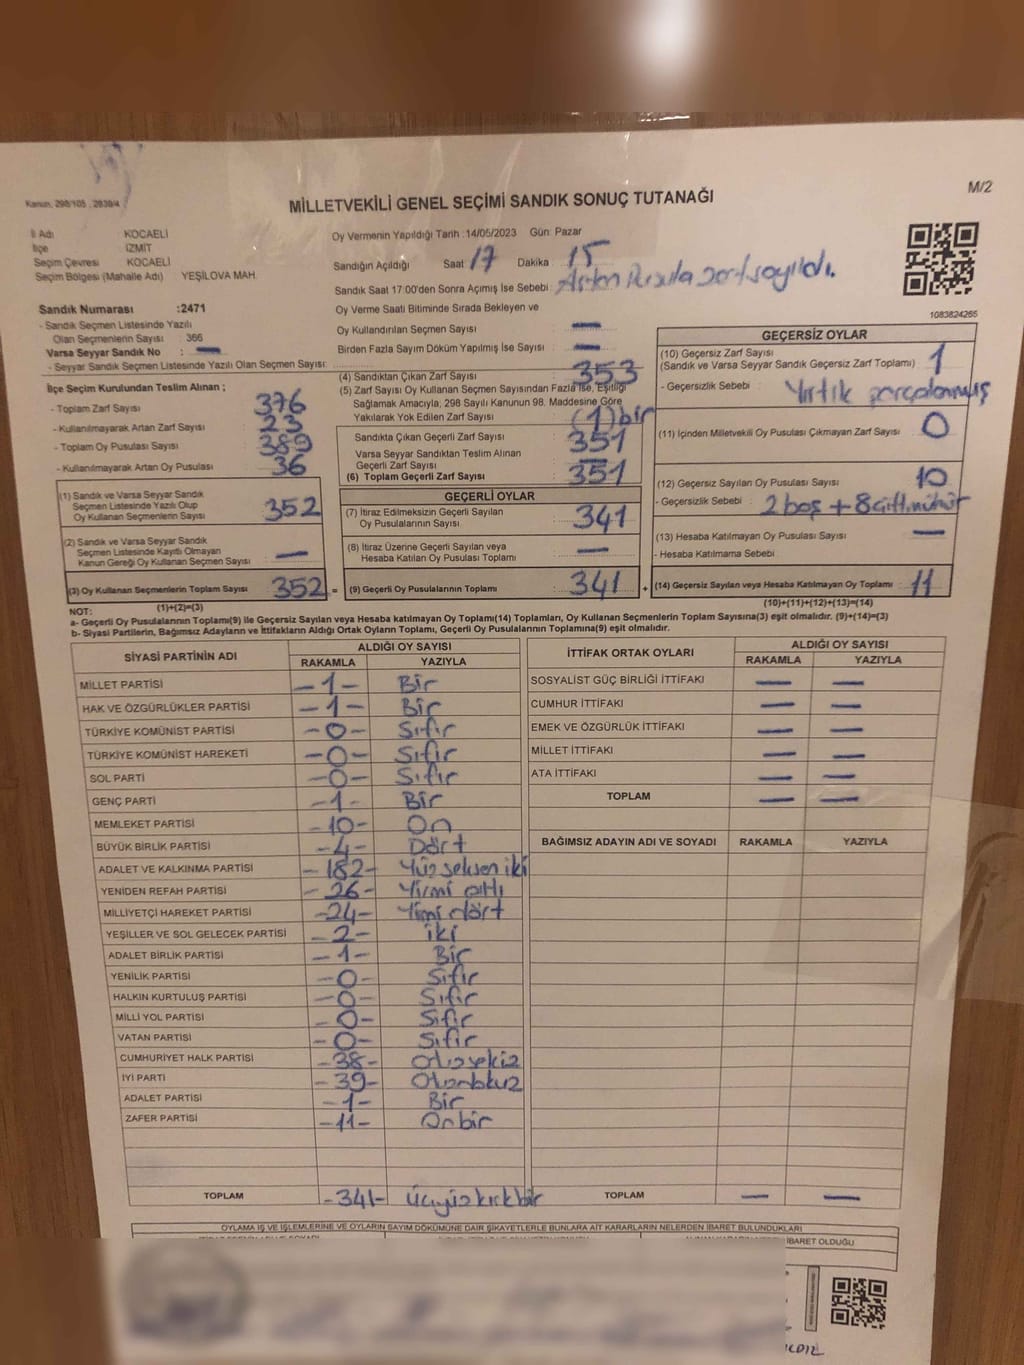 M/2
Kanun, 298/105 , 2839/4
MİLLETVEKİLİ GENEL SEÇİMİ SANDIK SONUÇ TUTANAĞI
İl Adı KOCAELİ
İlçe İZMİT
Seçim Çevresi KOCAELİ
Seçim Bölgesi (Mahalle Adı) YEŞİLOVA MAH.
Oy Vermenin Yapıldığı Tarih : 14/05/2023 Gün: Pazar
Sandığın Açıldığı Saat : 17 Dakika : 15
Sandık Saat 17:00'den Sonra Açımış İse Sebebi : Artan Pusula zarf sayıldı.
1083824265
Sandık Numarası :2471
- Sandık Seçmen Listesinde Yazılı
Olan Seçmenlerin Sayısı : 366
Varsa Seyyar Sandık No : —
- Seyyar Sandık Seçmen Listesinde Yazılı Olan Seçmen Sayısı :
Oy Verme Saati Bitiminde Sırada Bekleyen ve
Oy Kullandırılan Seçmen Sayısı : —
Birden Fazla Sayım Döküm Yapılmış İse Sayısı : —
İlçe Seçim Kurulundan Teslim Alınan ;
- Toplam Zarf Sayısı : 376
- Kullanılmayarak Artan Zarf Sayısı : 23
- Toplam Oy Pusulası Sayısı : 389
- Kullanılmayarak Artan Oy Pusulası : 36
(1) Sandık ve Varsa Seyyar Sandık
Seçmen Listesinde Yazılı Olup
Oy Kullanan Seçmenlerin Sayısı : 352
(2) Sandık ve Varsa Seyyar Sandık
Seçmen Listesinde Kayıtlı Olmayan
Kanun Gereği Oy Kullanan Seçmen Sayısı : —
(3) Oy Kullanan Seçmenlerin Toplam Sayısı : 352 =
(1)+(2)=(3)
(4) Sandıktan Çıkan Zarf Sayısı : 353
(5) Zarf Sayısı Oy Kullanan Seçmen Sayısından Fazla İse, Eşitliği
Sağlamak Amacıyla, 298 Sayılı Kanunun 98. Maddesine Göre
Yakılarak Yok Edilen Zarf Sayısı : (1) bir
Sandıkta Çıkan Geçerli Zarf Sayısı : 351
Varsa Seyyar Sandıktan Teslim Alınan
Geçerli Zarf Sayısı : —
(6) Toplam Geçerli Zarf Sayısı : 351
GEÇERLİ OYLAR
(7) İtiraz Edilmeksizin Geçerli Sayılan
Oy Pusulalarının Sayısı : 341
(8) İtiraz Üzerine Geçerli Sayılan veya
Hesaba Katılan Oy Pusulası Toplamı : —
(9) Geçerli Oy Pusulalarının Toplamı : 341 +
GEÇERSİZ OYLAR
(10) Geçersiz Zarf Sayısı
(Sandık ve Varsa Seyyar Sandık Geçersiz Zarf Toplamı) : 1
- Geçersizlik Sebebi : Yırtık parçalanmış
(11) İçinden Milletvekili Oy Pusulası Çıkmayan Zarf Sayısı : 0
(12) Geçersiz Sayılan Oy Pusulası Sayısı : 10
- Geçersizlik Sebebi : 2 boş + 8 çift mühür
(13) Hesaba Katılmayan Oy Pusulası Sayısı : —
- Hesaba Katılmama Sebebi :
(14) Geçersiz Sayılan veya Hesaba Katılmayan Oy Toplamı : 11
(10)+(11)+(12)+(13)=(14)
NOT:
a- Geçerli Oy Pusulalarının Toplamı(9) ile Geçersiz Sayılan veya Hesaba katılmayan Oy Toplamı(14) Toplamları, Oy Kullanan Seçmenlerin Toplam Sayısına(3) eşit olmalıdır. (9)+(14)=(3)
b- Siyasi Partilerin, Bağımsız Adayların ve İttifakların Aldığı Ortak Oyların Toplamı, Geçerli Oy Pusulalarının Toplamına(9) eşit olmalıdır.
SİYASİ PARTİNİN ADI ALDIĞI OY SAYISI
RAKAMLA YAZIYLA
MİLLET PARTİSİ -1- Bir
HAK VE ÖZGÜRLÜKLER PARTİSİ -1- Bir
TÜRKİYE KOMÜNİST PARTİSİ -0- Sıfır
TÜRKİYE KOMÜNİST HAREKETİ -0- Sıfır
SOL PARTİ -0- Sıfır
GENÇ PARTİ -1- Bir
MEMLEKET PARTİSİ -10- On
BÜYÜK BİRLİK PARTİSİ -4- Dört
ADALET VE KALKINMA PARTİSİ -182- Yüzseksen iki
YENİDEN REFAH PARTİSİ -26- Yirmi altı
MİLLİYETÇİ HAREKET PARTİSİ -24- Yimi dört
YEŞİLLER VE SOL GELECEK PARTİSİ -2- iki
ADALET BİRLİK PARTİSİ -1- Bir
YENİLİK PARTİSİ -0- Sıfır
HALKIN KURTULUŞ PARTİSİ -0- Sıfır
MİLLİ YOL PARTİSİ -0- Sıfır
VATAN PARTİSİ -0- Sıfır
CUMHURİYET HALK PARTİSİ -38- Otuzsekiz
İYİ PARTİ -39- Otuzdokuz
ADALET PARTİSİ -1- Bir
ZAFER PARTİSİ -11- Onbir
TOPLAM -341- Üçyüzkırkbir
İTTİFAK ORTAK OYLARI ALDIĞI OY SAYISI
RAKAMLA YAZIYLA
SOSYALİST GÜÇ BİRLİĞİ İTTİFAKI — —
CUMHUR İTTİFAKI — —
EMEK VE ÖZGÜRLÜK İTTİFAKI — —
MİLLET İTTİFAKI — —
ATA İTTİFAKI — —
TOPLAM — —
BAĞIMSIZ ADAYIN ADI VE SOYADI RAKAMLA YAZIYLA
TOPLAM — —
OYLAMA İŞ VE İŞLEMLERİNE VE OYLARIN SAYIM DÖKÜMÜNE DAİR ŞİKAYETLERLE BUNLARA AİT KARARLARIN NELERDEN İBARET BULUNDUKLARI
İBARET OLDUĞU